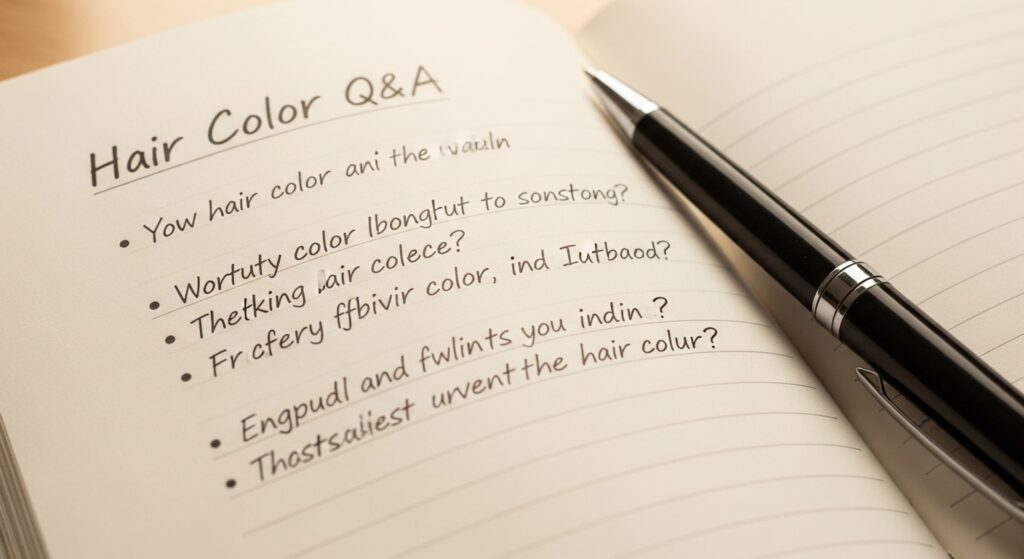 Hair Color Q&A
• Yow hair color ani the
• Wortuty color lbongtut to sonstong?
• Thetking air colece?
• Fr cfery ffbivir color, ind Iutbaod?
• Engpudl and fwlints you indin ?
• Thostsaliest urvent the hair colur?